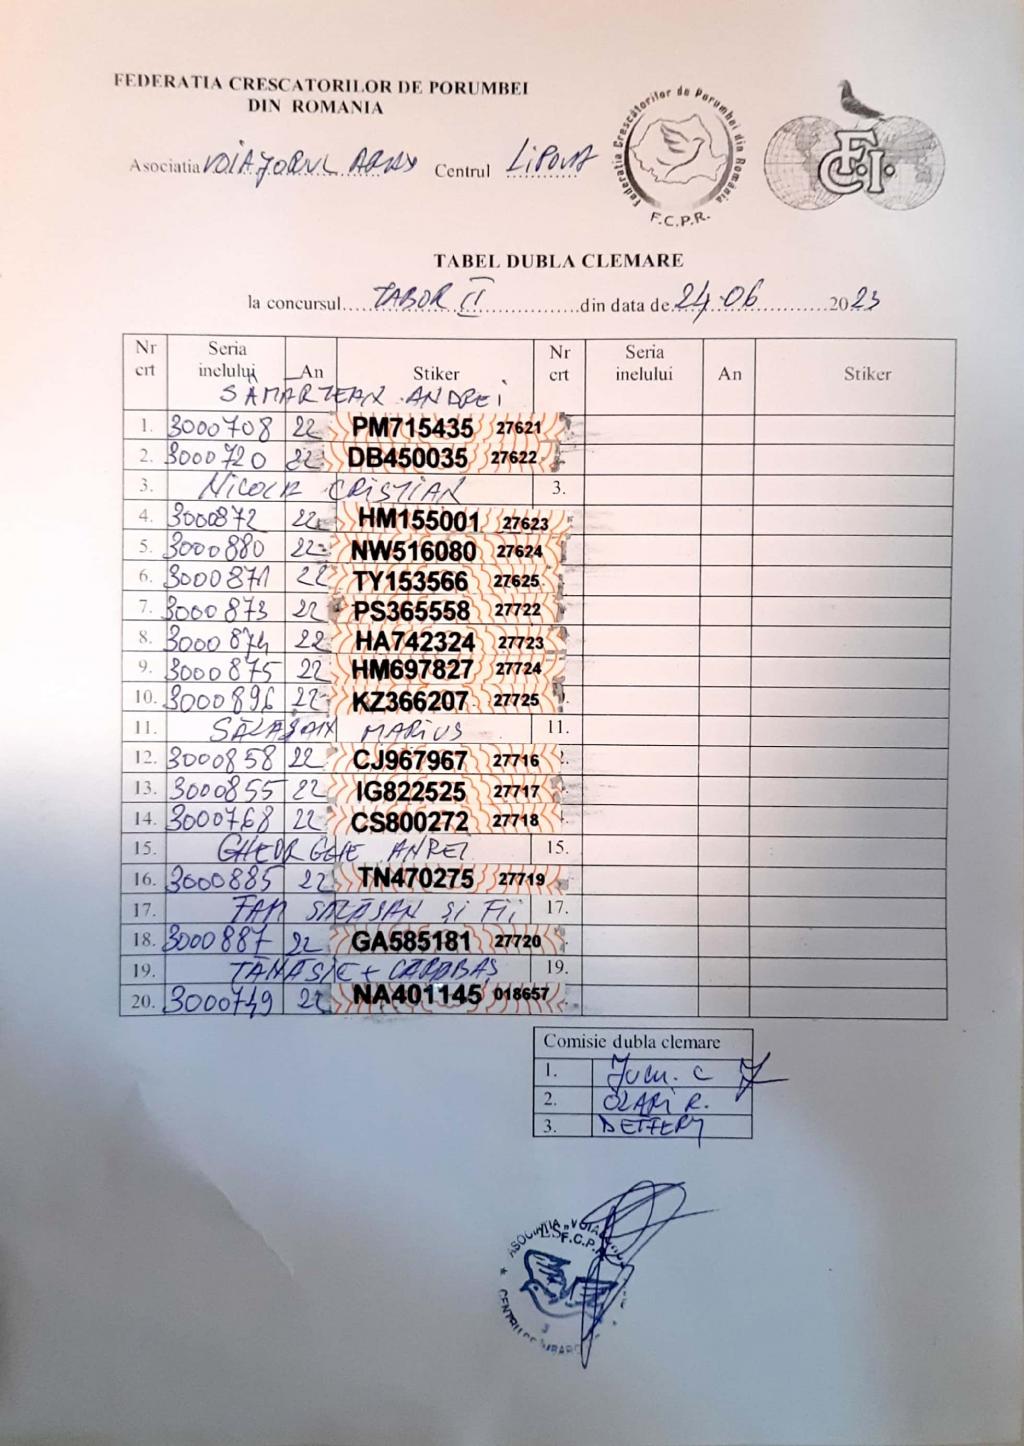 FEDERATIA CRESCATORILOR DE PORUMBEI
DIN ROMANIA
Federatia Crescătorilor de Porumbei din România
F.C.P.R.
F.C.I.
Asociatia VOIAJORUL ARAD Centrul LIPOVA
TABEL DUBLA CLEMARE
la concursul TABOR II din data de 24.06 2023
Nr crt Seria inelului An Stiker Nr crt Seria inelului An Stiker
SAMARTEAN ANDREI
1. 3000708 22 PM715435 27621
2. 3000720 22 DB450035 27622
3. NICOLA CRISTIAN 3.
4. 3000872 22 HM155001 27623
5. 3000880 22 NW516080 27624
6. 3000871 22 TY153566 27625
7. 3000873 22 PS365558 27722
8. 3000874 22 HA742324 27723
9. 3000875 22 HM697827 27724
10. 3000896 22 KZ366207 27725
11. SĂLĂȘAN MARIUS 11.
12. 3000858 22 CJ967967 27716
13. 3000855 22 IG822525 27717
14. 3000768 22 CS800272 27718
15. GHEORGHE ANREI 15.
16. 3000885 22 TN470275 27719
17. FAM SĂLĂȘAN ȘI FII 17.
18. 3000887 22 GA585181 27720
19. TĂNASIE + CĂRĂBAȘ 19.
20. 3000749 22 NA401145 018657
Comisie dubla clemare
1.
2. OLARI R.
3.
ASOCIATIA „VOIA
F.C.P.R